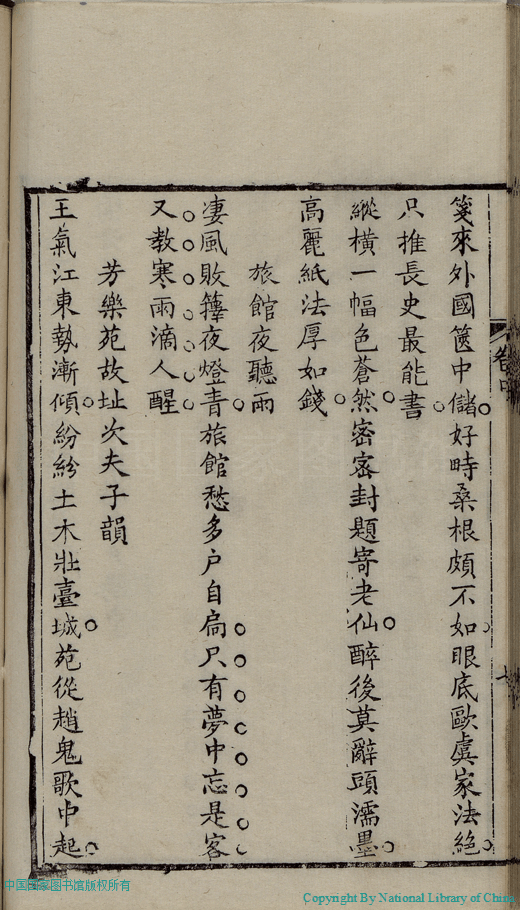 箋來外國篋中儲好時桑根頗不如眼底歐虞家法絕
只推長史最能書
縱橫一幅色蒼然密密封題寄老仙醉後莫辭頭濡墨
高麗紙法厚如錢
旅館夜聽雨
凄風敗籜夜燈青旅館愁多户自扃尺有夢中忘是客
又教寒雨滴人醒
芳樂苑故址次夫子韻
王氣江東勢漸傾紛紛土木壯臺城苑從趙鬼歌中起
卷四
中国国家图书馆版权所有
Copyright By National Library of China